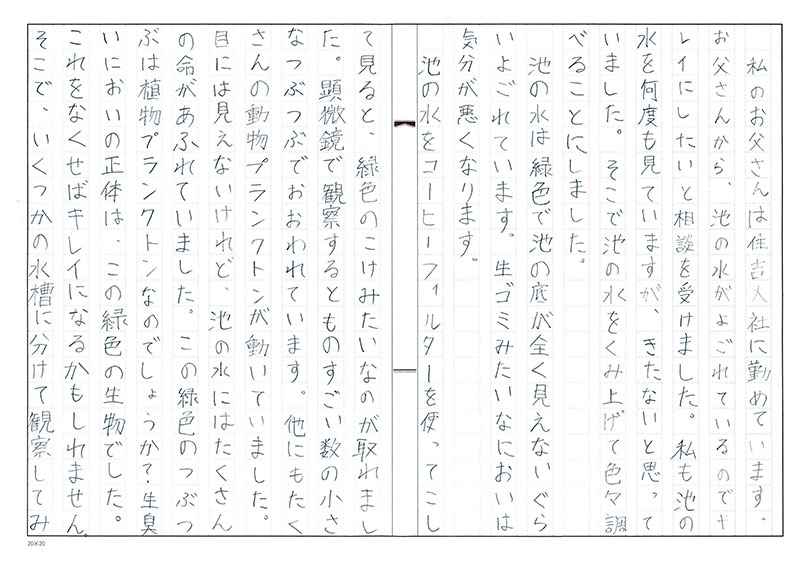 私のお父さんは住吉大社に勤めています。
お父さんから、池の水がよごれているのでキ
レイにしたいと相談を受けました。私も池の
水を何度も見ていますが、きたないと思って
いました。そこで池の水をくみ上げて色々調
べることにしました。
池の水は緑色で池の底が全く見えないぐら
いよごれています。生ゴミみたいなにおいは
気分が悪くなります。
池の水をコーヒーフィルターを使ってこし
て見ると、緑色のこけみたいなのが取れまし
た。顕微鏡で観察するとものすごい数の小さ
なつぶつぶでおおわれています。他にもたく
さんの動物プランクトンが動いていました。
目には見えないけれど、池の水にはたくさん
の命があふれていました。この緑色のつぶつ
ぶは植物プランクトンなのでしょうか?生臭
いにおいの正体は、この緑色の生物でした。
これをなくせばキレイになるかもしれません。
そこで、いくつかの水槽に分けて観察してみ
20×20